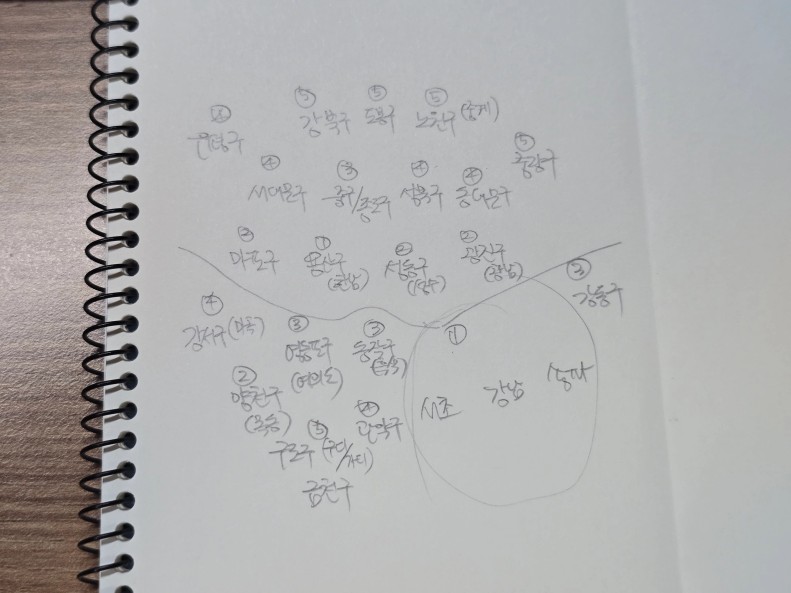 ⑤ ⑤ ⑤
강북구 도봉구 노원구 (중계)
은평구
⑤
중랑구
④ ③ ④ ④
서대문구 중구/종로구 성북구 동대문구
① ②
마포구 용산구 성동구 광진구
(한남) (성수) (광남)
③
강동구
④
강서구 (마곡)
③ ③ ①
영등포구 동작구
(여의도) (흑석)
②
양천구
(목동)
관악구
서초 강남 송파
구로구 (구디/가디)
금천구